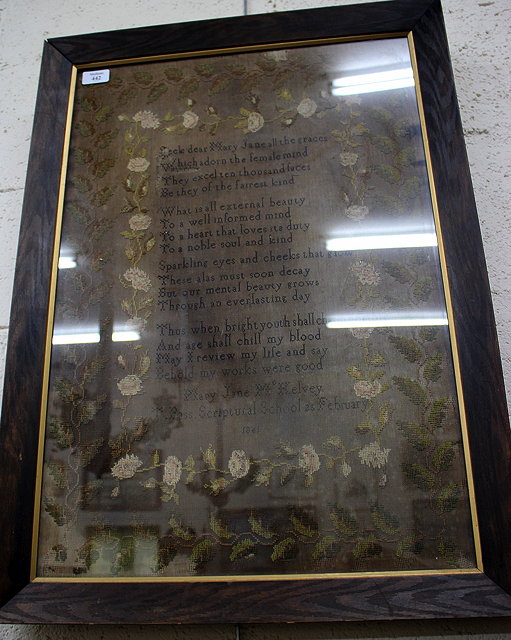 442
Seek dear Mary Jane all the graces
Which adorn the female mind
They excel ten thousand faces
Be they of the fairest kind
What is all external beauty
To a well informed mind
To a heart that loves its duty
To a noble soul and kind
Sparkling eyes and cheeks that glow
These alas must soon decay
But our mental beauty grows
Through an everlasting day
Thus when bright youth shall
And age shall chill my blood
May I review my life and say
Behold my works were good
Mary Jane Mc Kelvey
Ross. Scriptural School 25 February
1861